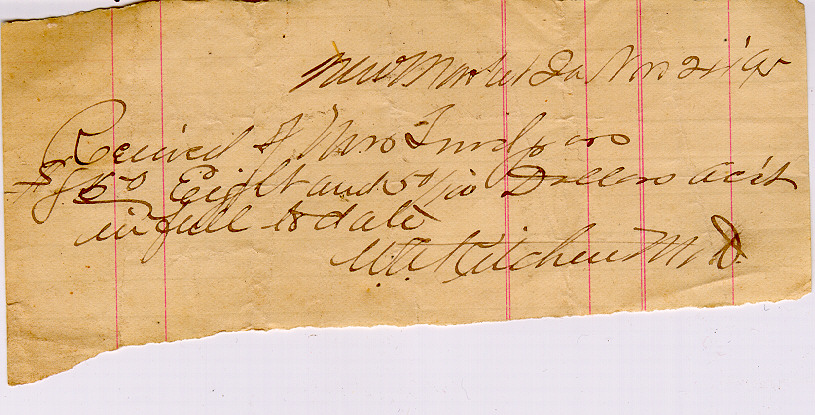 New Market Ia Nov 24 '95
Received of Mrs
$8 50 Eight and 50/100 Dollars acct
in full to date
W.A. Kitchen M.D.